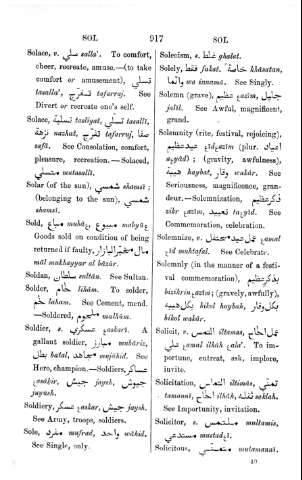 SOL 917 SOL
Solace, سلى salla'. To comfort,
cheer, recreate, amuse.—(to take
comfort or amusement), تسلى
tasalla', تفرّج tafarraj. See
Divert or recreate one's self.
Solace, تسلية tasliyat, تسلى tasallī,
نزهة nazhat, تفرّج tafarruj, صفا
safā. See Consolation, comfort,
pleasure, recreation.—Solaced,
متسلى mutasallī.
Solar (of the sun), شمسي shamsī;
(belonging to the sun), شمسي
shamsī.
Sold, مباع mubāع, مبيوع mabyūع.
Goods sold on condition of being
returned if faulty, مال مخيّر البازار
māl makhayyar al bāzār.
Soldan, سلطان sultān. See Sultan.
Solder, لحام lihām. To solder,
لحم laham. See Cement, mend.
—Soldered, ملحوم malhūm.
Soldier, عسكري عaskarī. A
gallant soldier, مبارز mubāriz,
بطل batal, مجاهد mujāhid. See
Hero, champion.—Soldiers, عساكر
عasākir, جيش jaysh, جيوش
juyūsh.
Soldiery, عسكر عaskar, جيش jaysh.
See Army, troops, soldiers.
Sole, مفرد mufrad, واحد wāhid.
See Single, only.
Solecism, غلط ghalat.
Solely, فقط fakat, خاصةً khāsatan,
وإنما wa innamā. See Singly.
Solemn (grave), عظيم عazīm, جليل
jalīl. See Awful, magnificent,
grand.
Solemnity (rite, festival, rejoicing),
عيد عظيم عīdعazīm (plur. اعياد
aعyād); (gravity, awfulness),
هيبة haybat, وقار wakār. See
Seriousness, magnificence, gran-
deur.—Solemnization, ذكر عظيم
zikr عazīm, تعييد taعyīd. See
Commemoration, celebration.
Solemnize, عمل عيد محتفل عamal
عīd muhtafal. See Celebrate.
Solemnly (in the manner of a festi-
val commemoration), بذكر عظيم
bizikrinعazīm; (gravely, awfully),
بكل هيبة bikol haybah, بكل وقار
bikol wakār.
Solicit, التمس iltamas, عمل الحاح
على عamal ilhāh عala'. To im-
portune, entreat, ask, implore,
invite.
Solicitation, التماس iltimās, تمنّي
tamannī, الحاح ilhāh,
See Importunity, invitation.
Solicitor, ملتمس multamis,
مستدعي mustadعī.
Solicitous, متمني mutamannī.